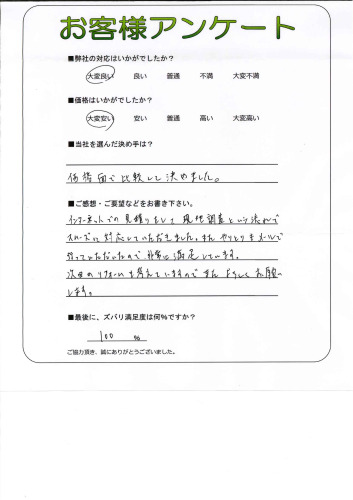 お客様アンケート
■弊社の対応はいかがでしたか？
大変良い 良い 普通 不満 大変不満
■価格はいかがでしたか？
大変安い 安い 普通 高い 大変高い
■当社を選んだ決め手は？
価格面で比較して決めました。
■ご感想・ご要望などをお書き下さい。
インターネットでの見積りをして現地調査という流れで
スムーズに対応していただきました。またやりとりもメールで
行っていただいたので非常に満足しています。
次回のリフォームも考えていますのでまたよろしくお願い
します。
■最後に、ズバリ満足度は何%ですか？
100 %
ご協力頂き、誠にありがとうございました。